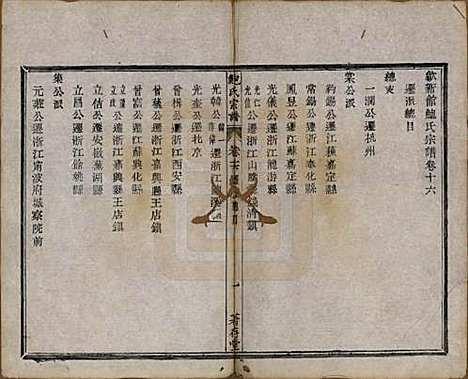 歙新館鮑氏宗譜卷十六
遷派總目
總束
一瀾公遷杭州
棠公派
鈞錫公遷江蘇嘉定縣
常錫公遷浙江奉化縣
鳳昱公遷江蘇嘉定縣
光儀公遷浙江龍游縣
光仁
光信公遷浙江山陰
清鎮
鮑氏宗譜
一
著存堂
光韓
遷浙江
光奎公遷北京
曾楫公遷浙江西安縣
曾富公遷江蘇興化縣
曾
公遷浙江嘉興縣王店鎮
立信公遷安徽蕪湖縣
立昌公遷浙江嘉興縣王店鎮
集公派
元龍公遷浙江甯波府城察院前